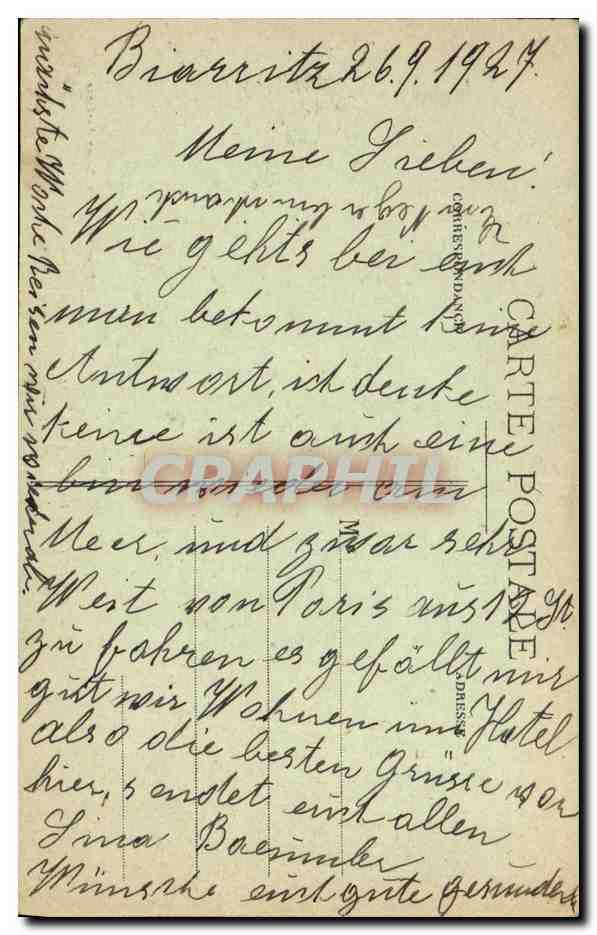 Biarritz 26.9.1927.
Meine Lieben!
Wie gehts bei euch
man bekommt keine
Antwort, ich denke
keine ist auch eine
bin wieder am
Meer, und zwar sehr
Weit von Paris aus 12 St.
zu fahren es gefällt mir
gut wir Wohnen im Hotel
also die besten Grüsse von
hier, sendet euch allen
Lina Baeumler
Wünsche euch gute
nächste Woche Reisen wir wieder ab.
CARTE POSTALE
CORRESPONDANCE
ADRESSE
M
CRAPHIL